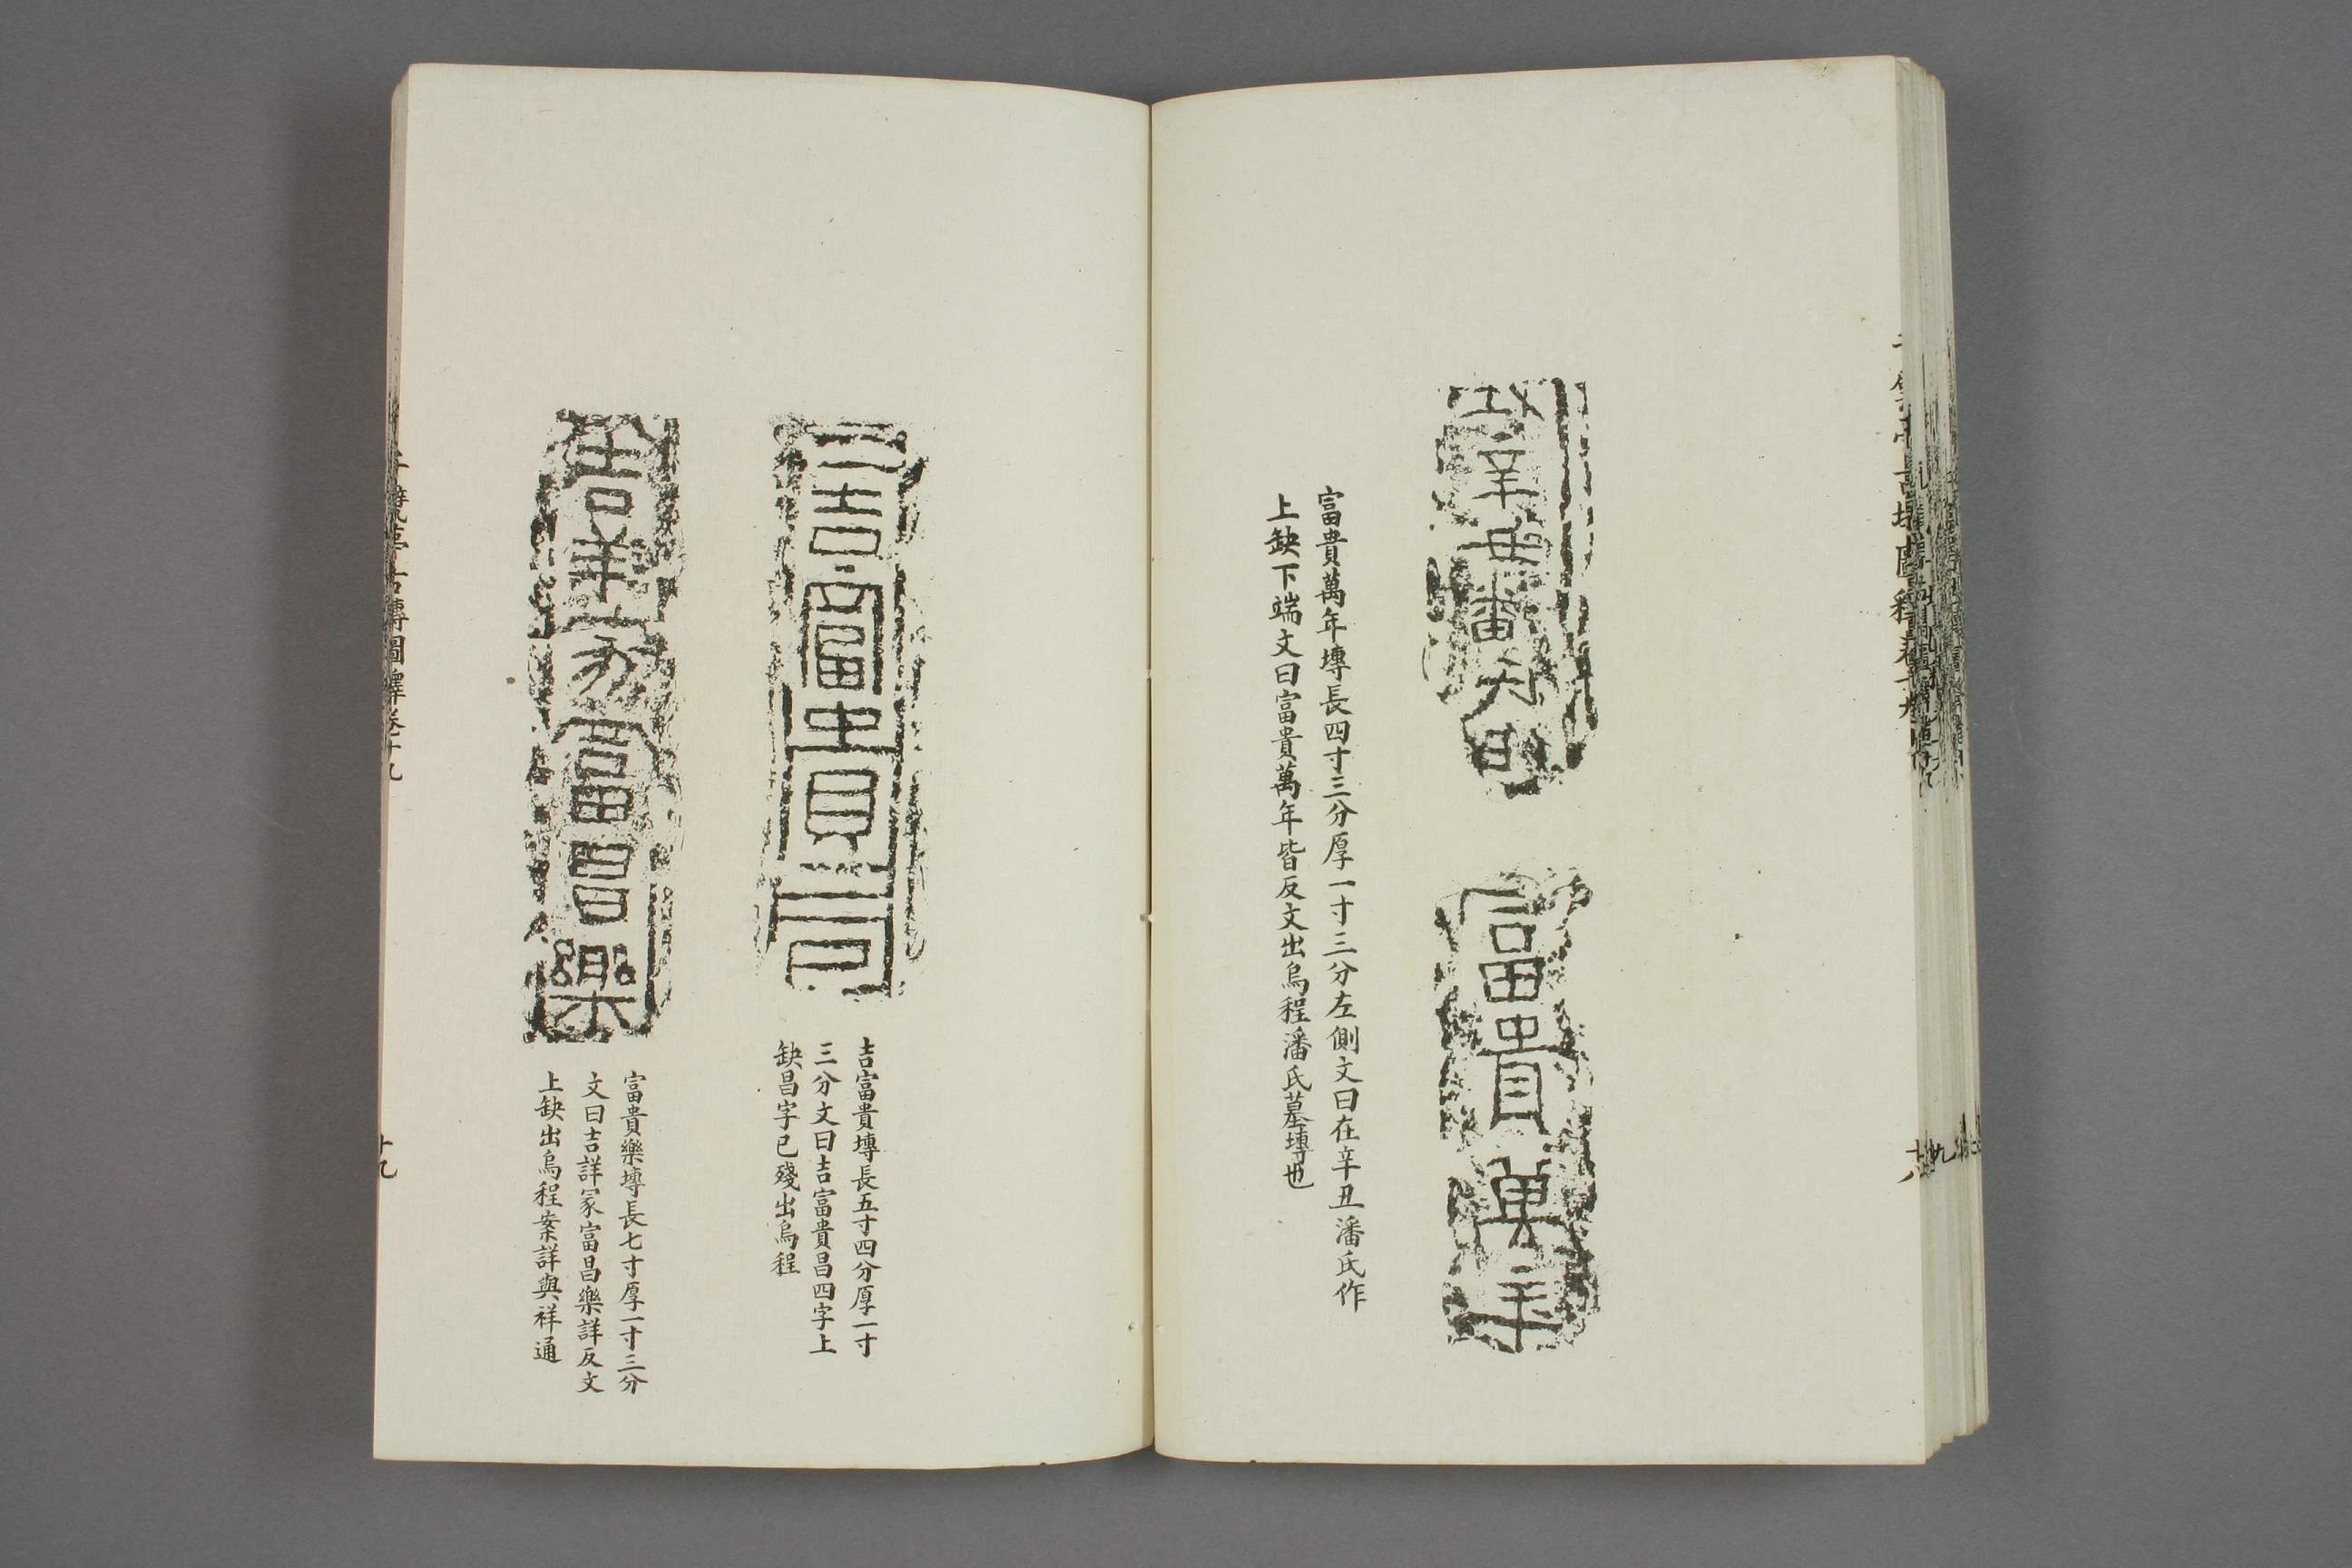 富貴萬年塼長四寸三分厚一寸三分左側文曰在辛丑潘氏作
上缺下端文曰富貴萬年皆反文出烏程潘氏墓塼也
吉富貴
吉富貴塼長五寸四分厚一寸
三分文曰吉富貴昌四字上
缺昌字已殘出烏程
吉羊冢富昌樂
富貴樂塼長七寸厚一寸三分
文曰吉詳冢富昌樂詳反文
上缺出烏程案詳與祥通
千甓亭古塼圖釋卷十九
十九